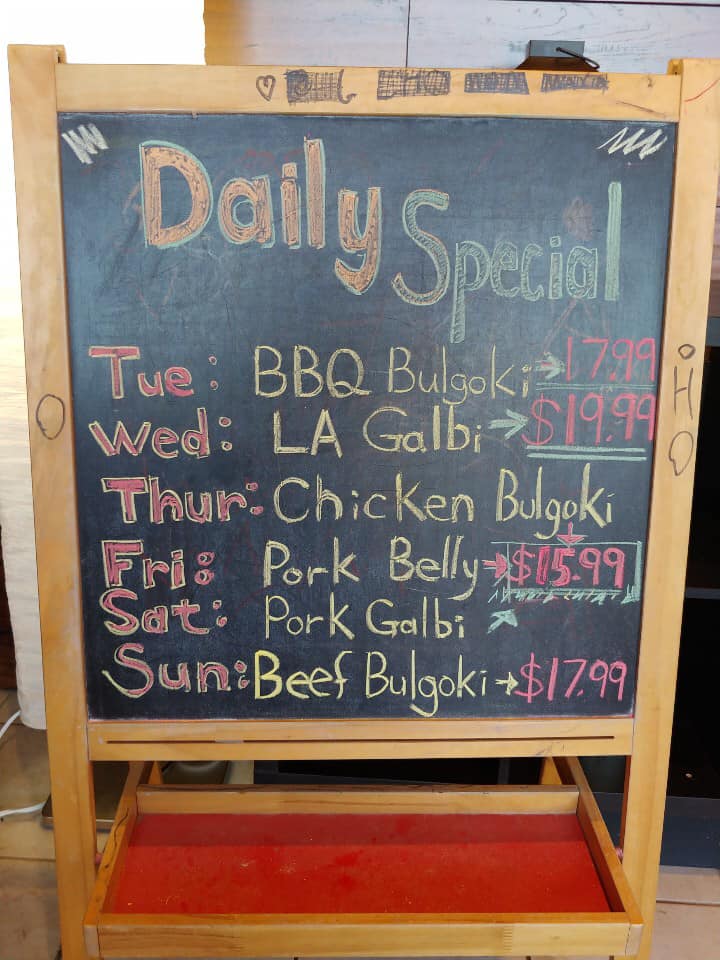 Daily Special
Tue: BBQ Bulgoki → 17.99
Wed: LA Galbi → $19.99
Thur: Chicken Bulgoki
Fri: Pork Belly → $15.99
Sat: Pork Galbi
Sun: Beef Bulgoki → $17.99